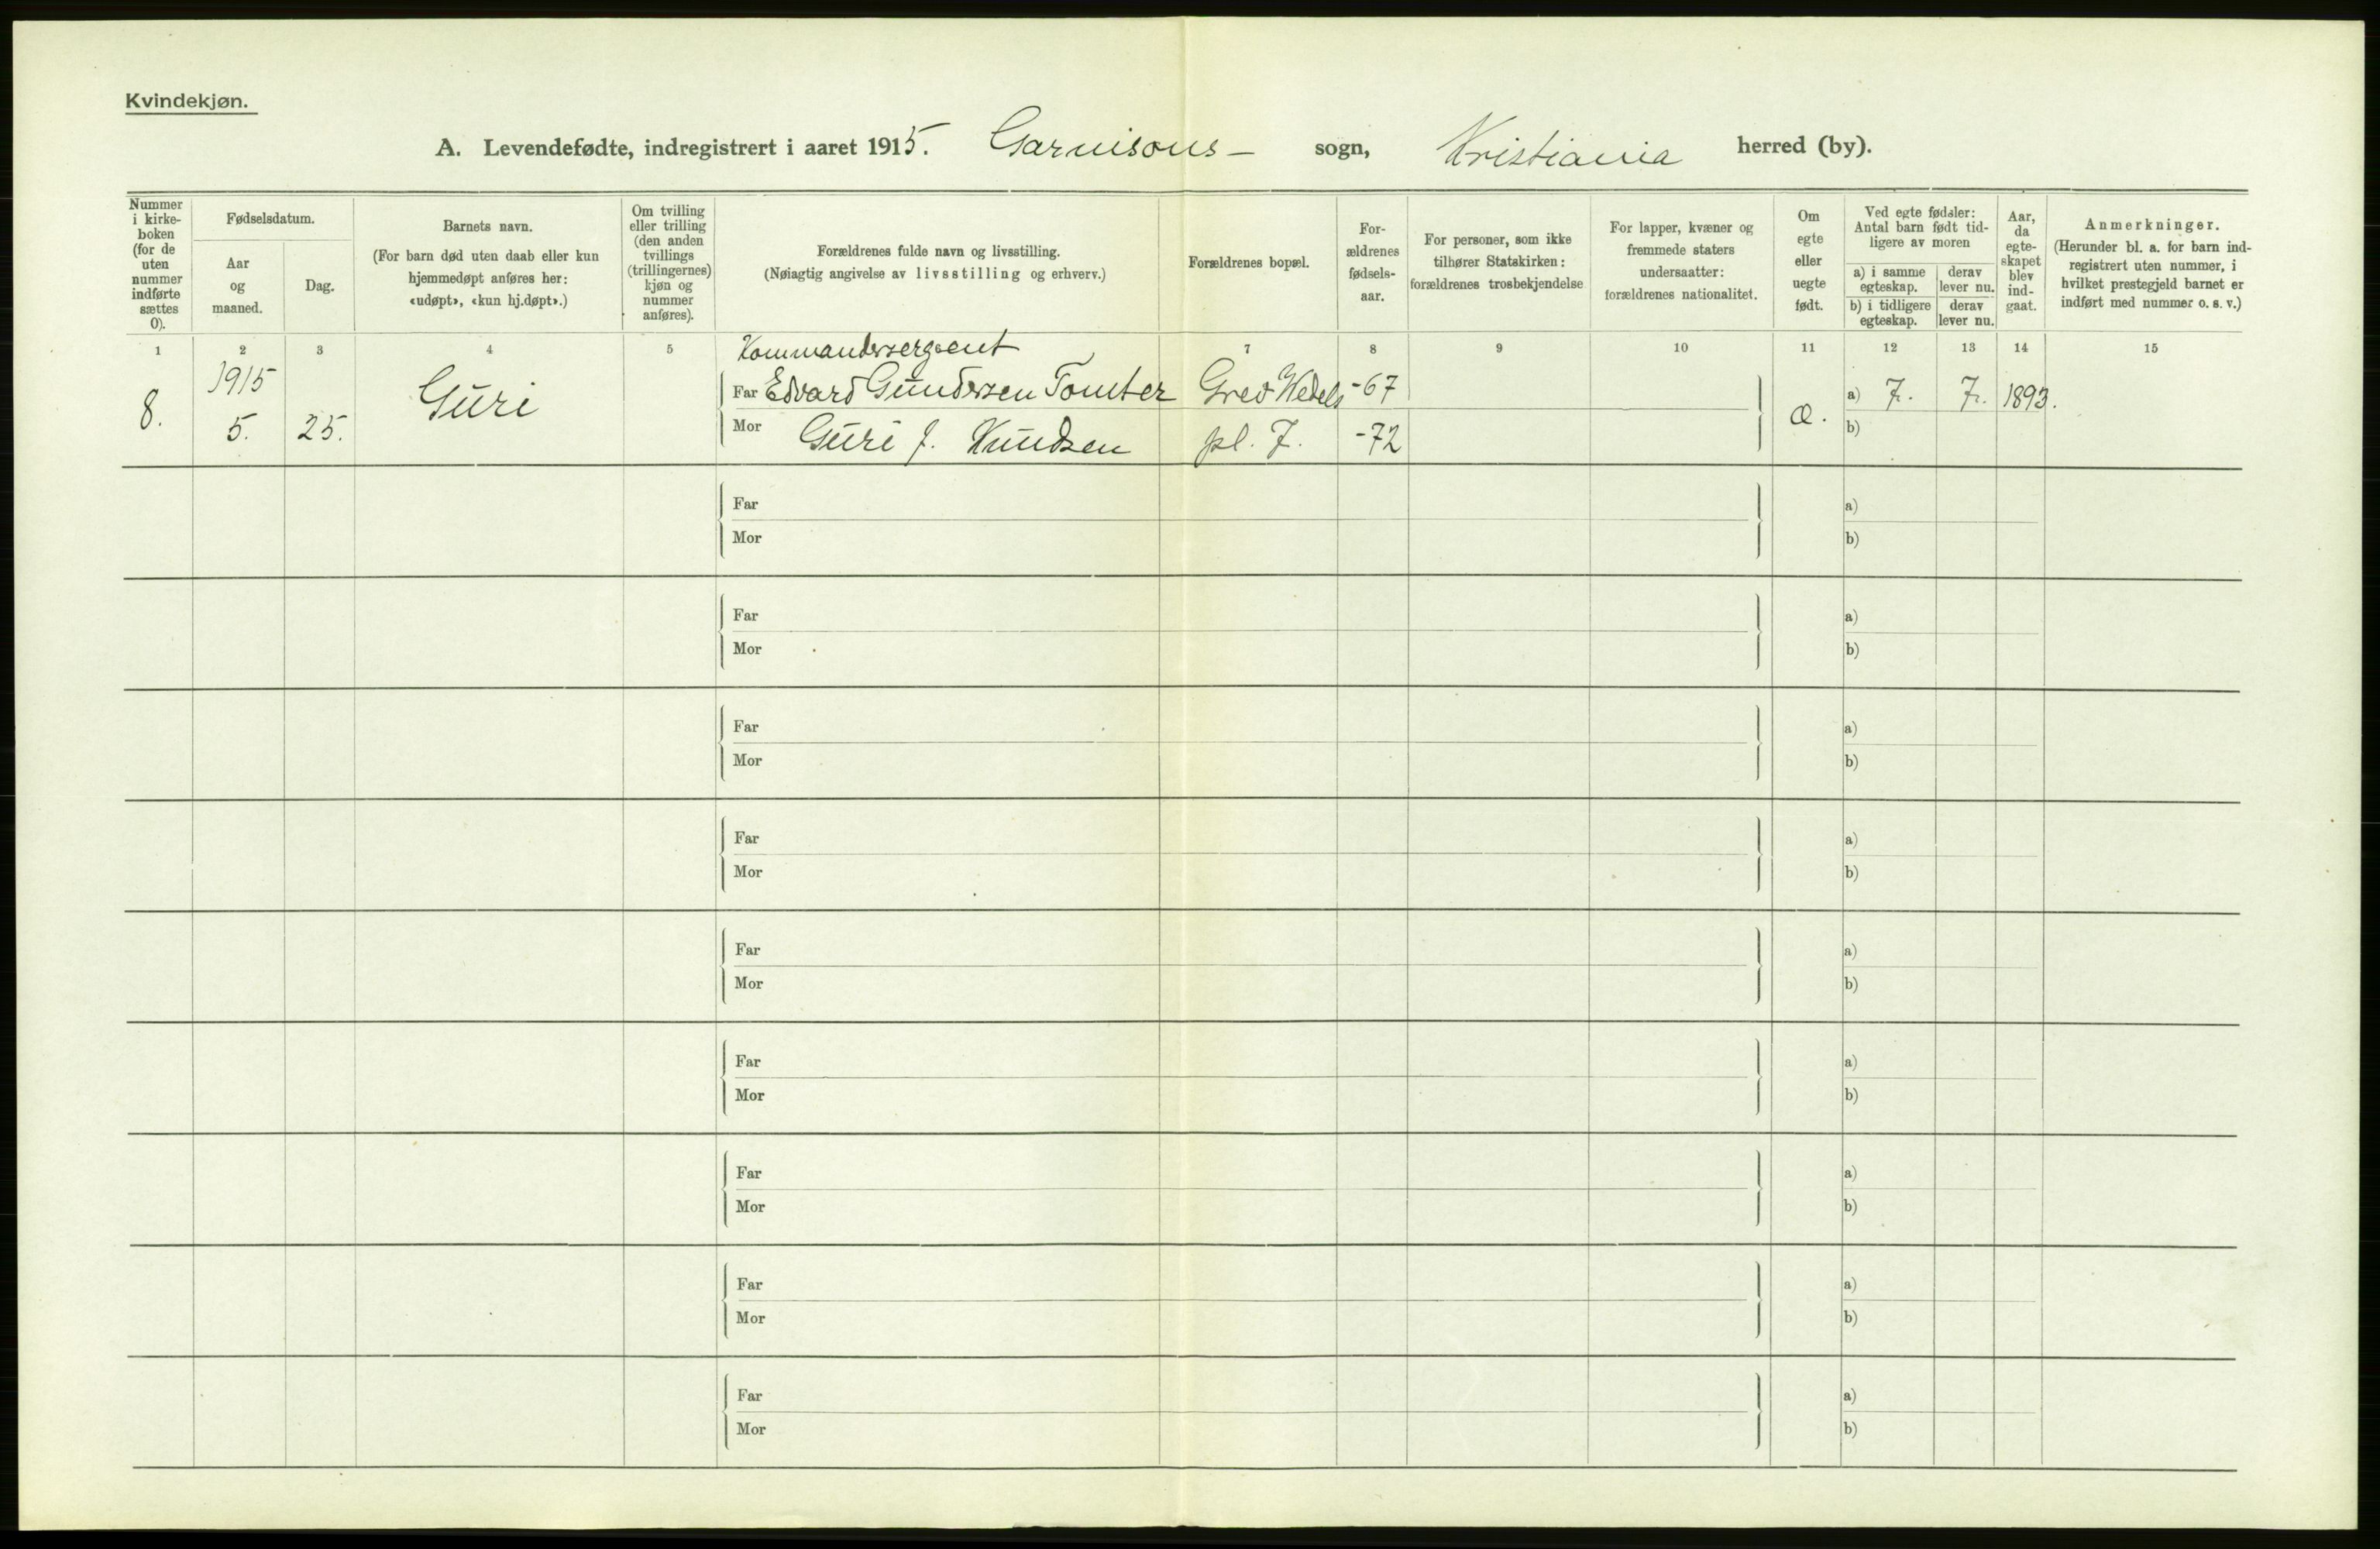 Kvindekjøn.
A. Levendefødte, indregistrert i aaret 1915. Garnisons- sogn, Kristiania herred (by).
Nummer
i kirke-
boken
(for de
uten
nummer
indførte
sættes
0).
Fødselsdatum.
Aar
og
maaned.
Dag.
Barnets navn.
(For barn død uten daab eller kun
hjemmedøpt anføres her:
«udøpt», «kun hj.døpt».)
Om tvilling
eller trilling
(den anden
tvillings
(trillingernes)
kjøn og
nummer
anføres).
Forældrenes fulde navn og livsstilling.
(Nøiagtig angivelse av livsstilling og erhverv.)
Forældrenes bopæl.
For-
ældrenes
fødsels-
aar.
For personer, som ikke
tilhører Statskirken:
forældrenes trosbekjendelse
For lapper, kvæner og
fremmede staters
undersaatter:
forældrenes nationalitet.
Om
egte
eller
uegte
født.
Ved egte fødsler:
Antal barn født tid-
ligere av moren
a) i samme
egteskap.
derav
lever nu.
b) i tidligere
egteskap.
derav
lever nu.
Aar,
da
egte-
skapet
blev
ind-
gaat.
Anmerkninger.
(Herunder bl. a. for barn ind-
registrert uten nummer, i
hvilket prestegjeld barnet er
indført med nummer o. s. v.)
1 2 3 4 5 7 8 9 10 11 12 13 14 15
Kommandersergeent
1915 Far Edvard Gundersen Tomter Grev Wedels -67 a) 7. 7. 1893.
8. 5. 25. Guri Mor Guri J. Knudsen pl. 7. -72 Æ. b)
Far a)
Mor b)
Far a)
Mor b)
Far a)
Mor b)
Far a)
Mor b)
Far a)
Mor b)
Far a)
Mor b)
Far a)
Mor b)
Far a)
Mor b)
Far a)
Mor b)